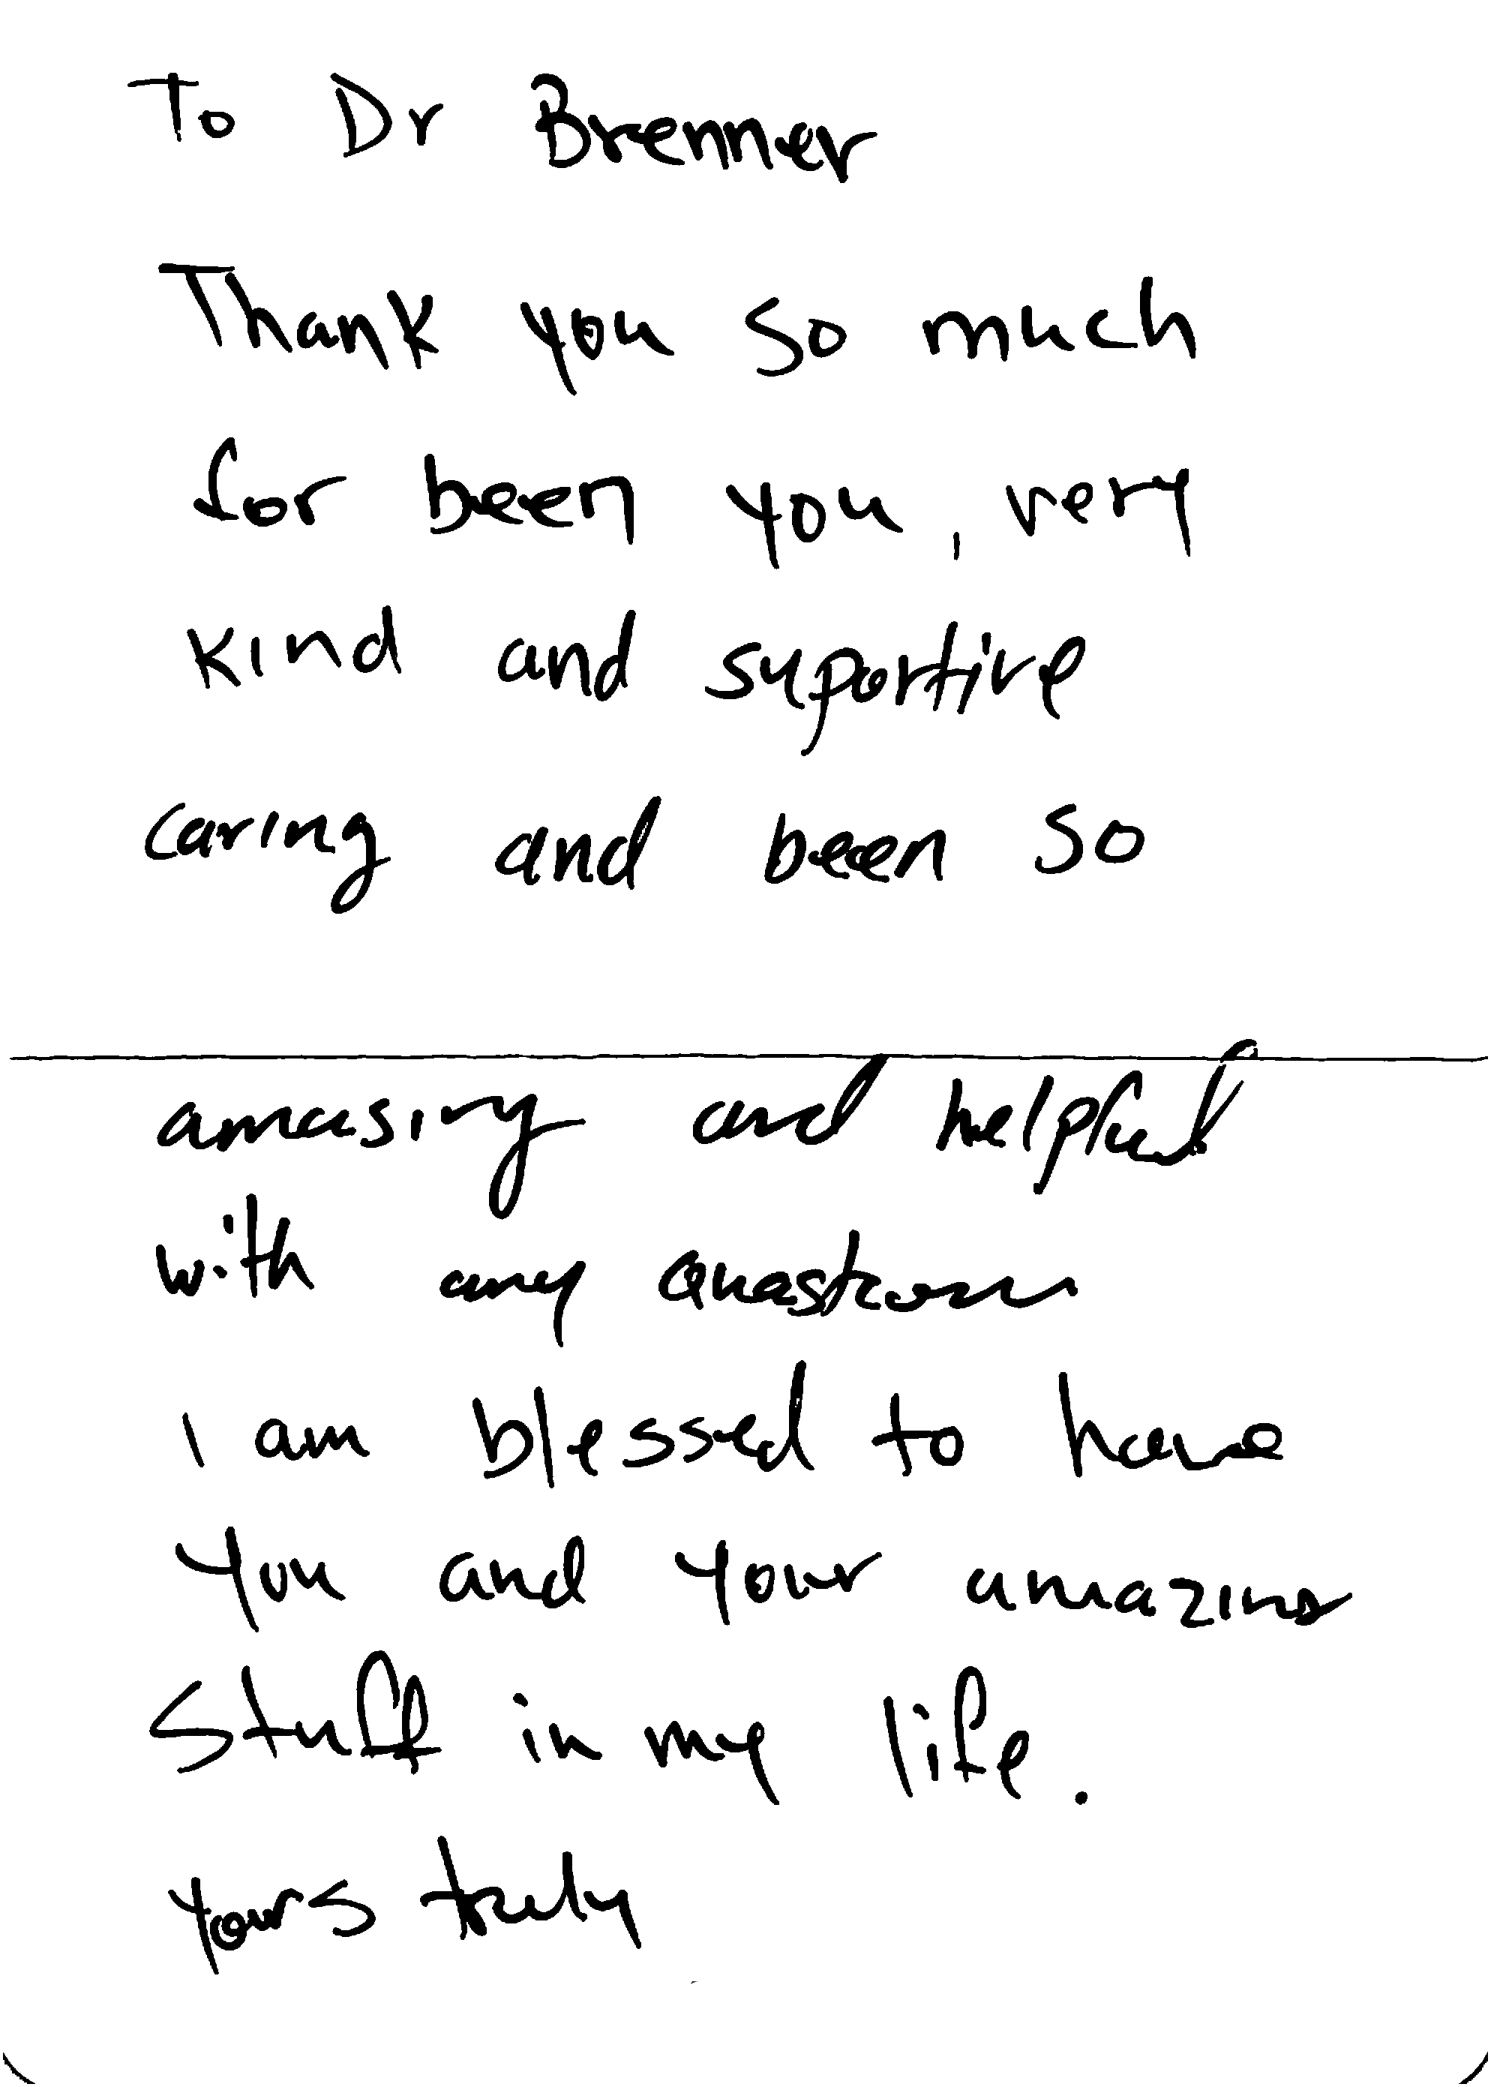 To Dr Brenner
Thank you so much
for been you, very
kind and suportive
caring and been so
amasing and helpful
with any quastion
I am blessed to have
you and your amazing
stuff in my life.
yours truly